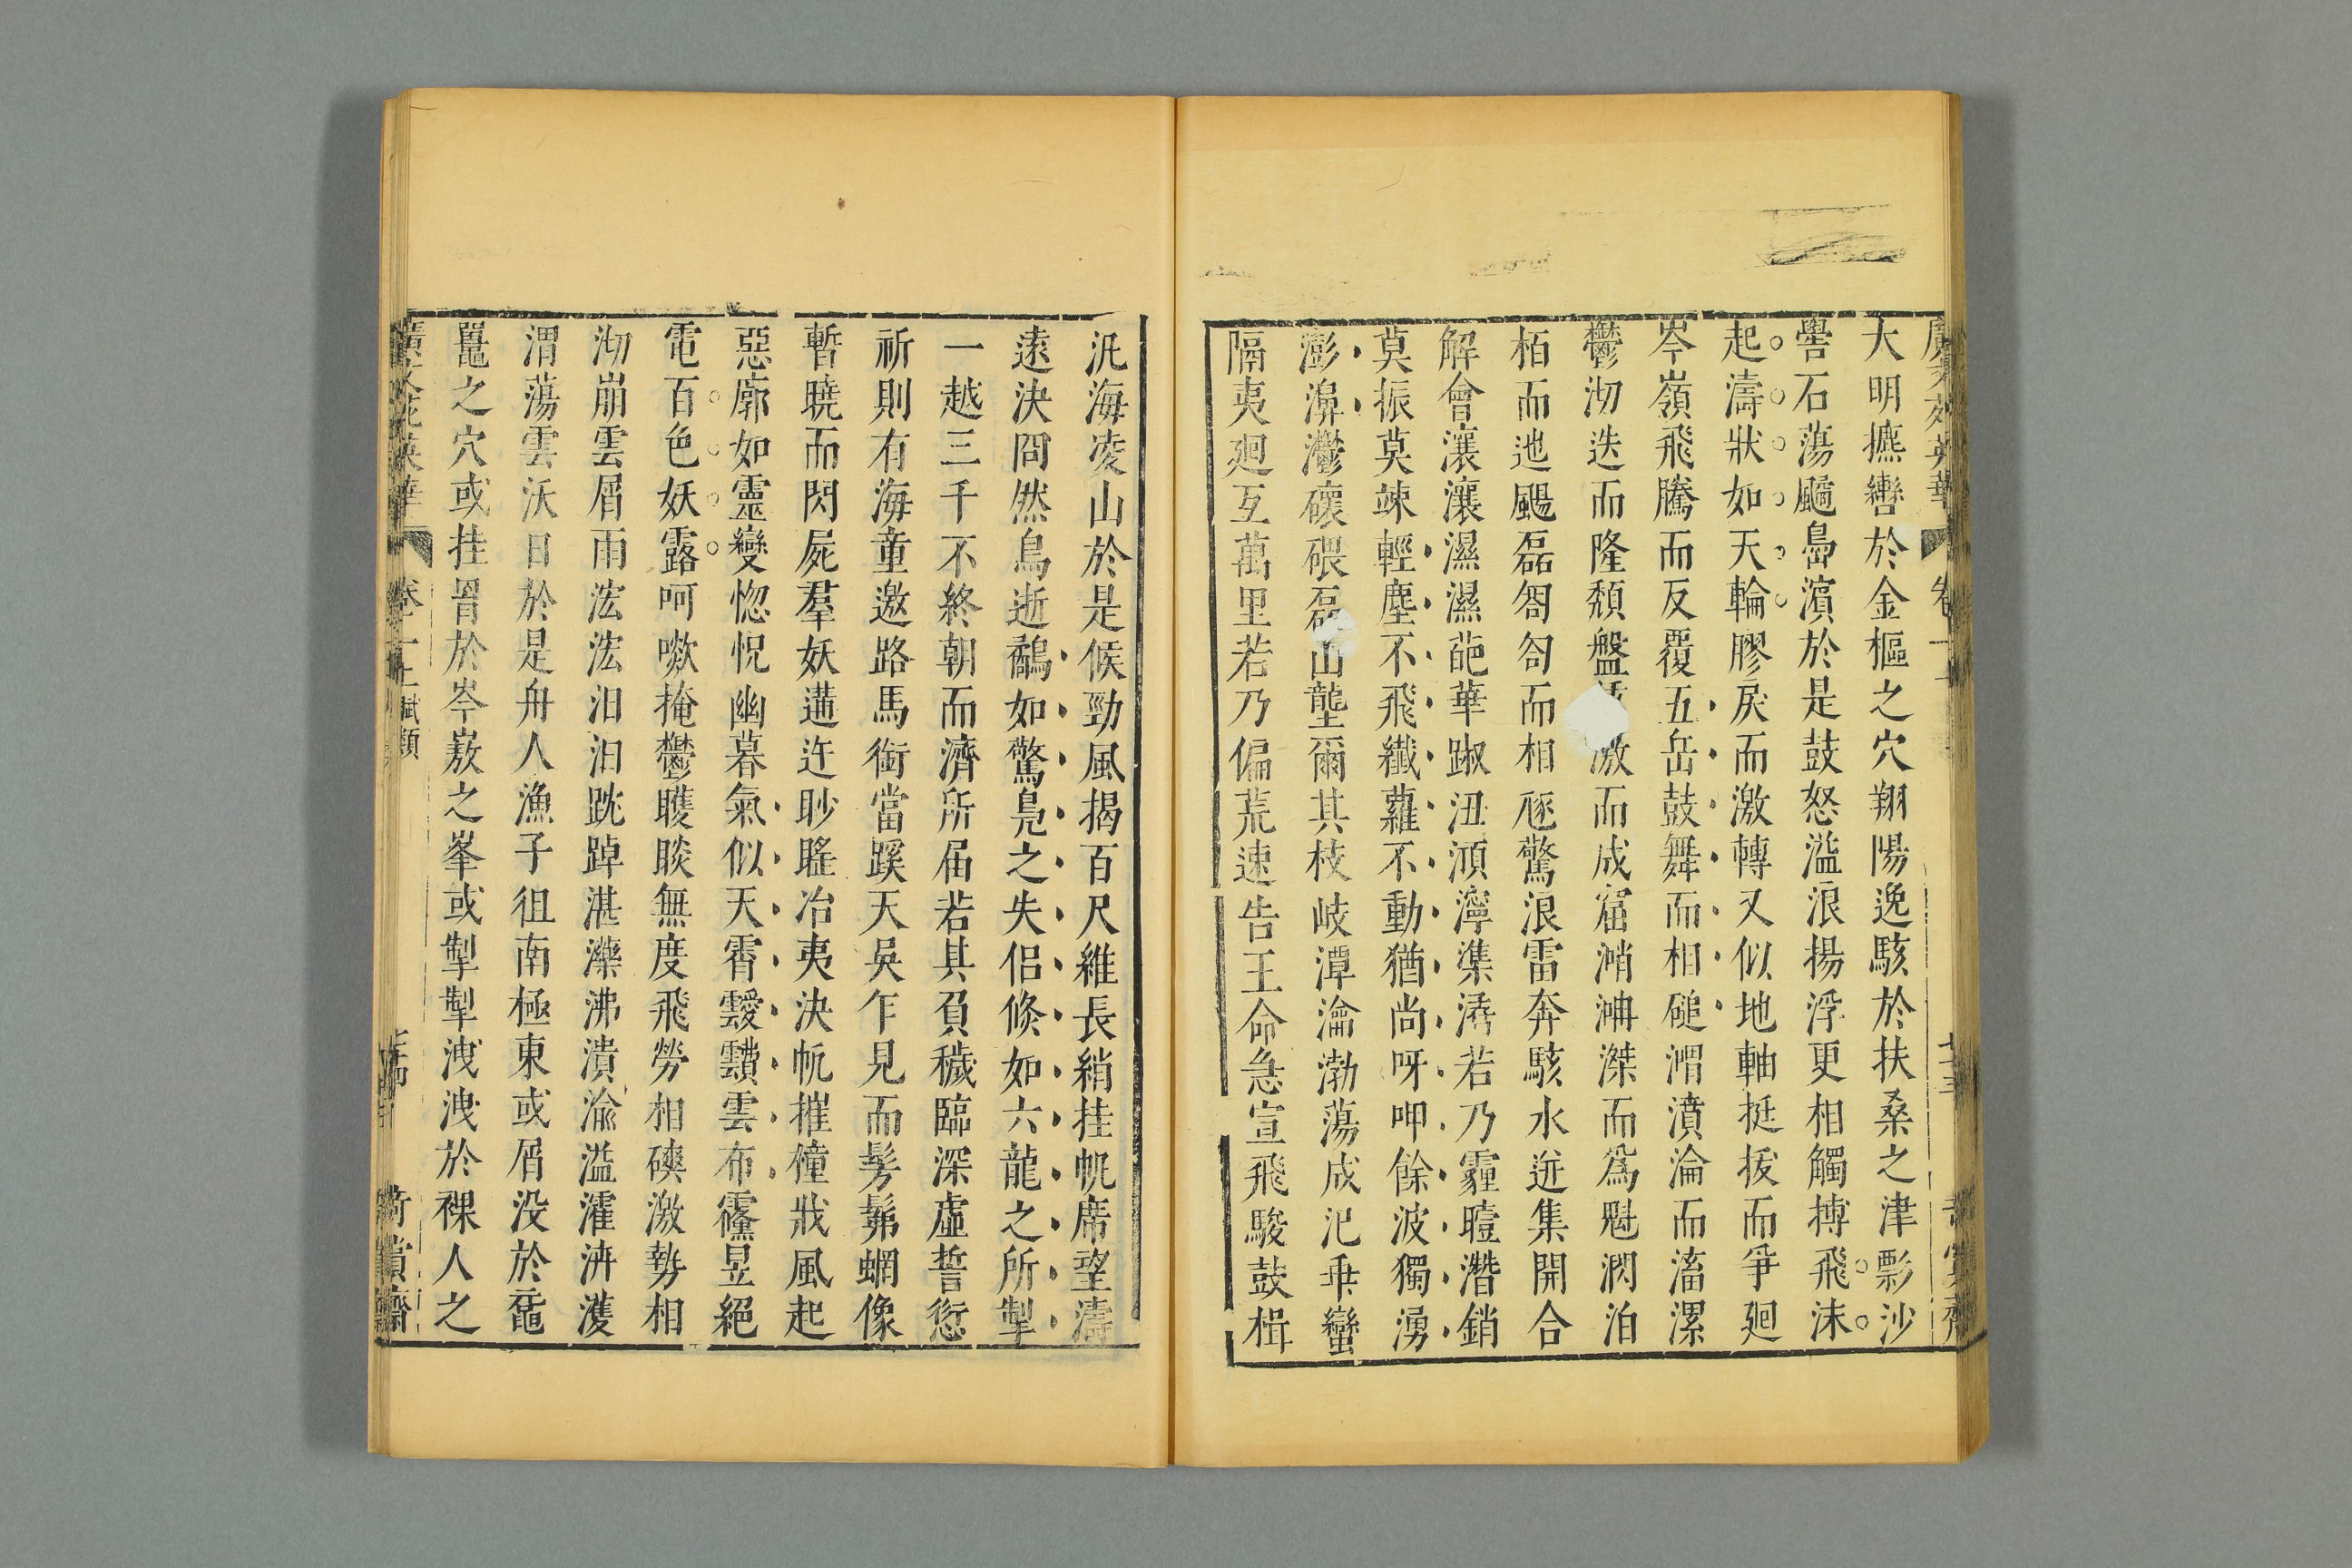 大明攠轡於金樞之穴翔陽逸駭於扶桑之津影沙
礐石蕩颺島濱於是鼓怒溢浪揚浮更相觸搏飛沫
起濤狀如天輪膠戾而激轉又似地軸挺拔而爭廻
岑嶺飛騰而反覆五岳鼓舞而相磓渭濆淪而滀漯
鬱沏迭而隆頹盤激而成窟㴥𣶏滐而爲魁㴸泊
栢而迆颺磊匒匌而相豗驚浪雷奔駭水迸集開合
解會瀼瀼濕濕葩華踧沑澒濘潗㵫若乃霾曀潛銷
莫振莫竦輕塵不飛纖蘿不動猶尚呀呷餘波獨湧
澎濞灪䃶碨磊山壟爾其枝岐潭瀹渤蕩成汜乖蠻
隔夷廻互萬里若乃偏荒速告王命急宣飛駿鼓楫
汎海凌山於是候勁風揭百尺維長綃挂帆席望濤
遠決冏然鳥逝鷸如驚鳧之失侶倐如六龍之所掣
一越三千不終朝而濟所届若其負穢臨深虛誓愆
祈則有海童邀路馬銜當蹊天吳乍見而髣髴蝄像
暫曉而閃屍羣妖遘迕眇䁘冶夷決帆摧橦戕風起
惡廓如靈變惚怳幽暮氣似天霄靉靅雲布霳昱絕
電百色妖露呵㰲掩鬱矆睒無度飛勞相磢激勢相
沏崩雲屑雨浤浤汩汩䟾踔湛藻沸潰渝溢濯泋濩
渭蕩雲沃日於是舟人漁子徂南極東或屑没於黿
鼉之穴或挂罥於岑㟼之峯或掣掣洩洩於裸人之
卷十一 賦類